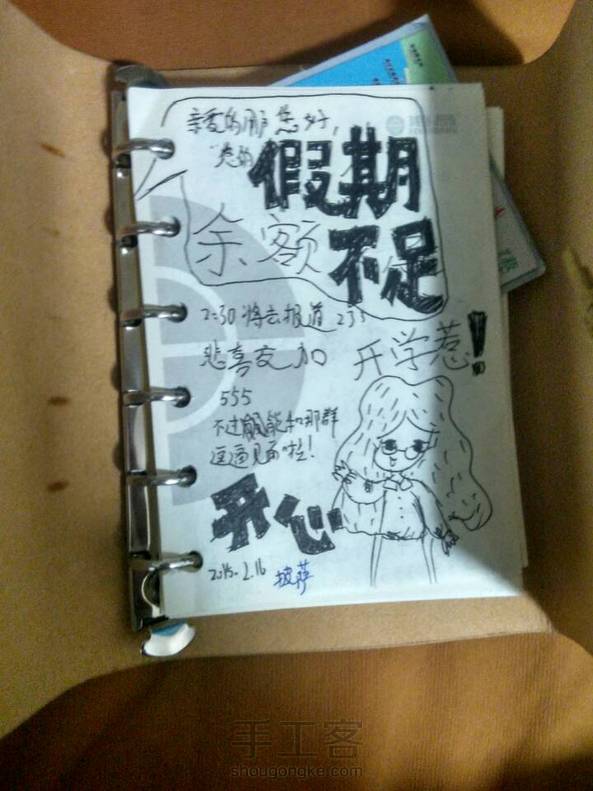 亲爱的朋 您好,
"您的假期
余额不足
2:30 将去报道
悲喜交加 开学惹!
555
不过能和那群
逗逼见面啦!
开心
2015.2.16 披萨
手工客
shougongke.com